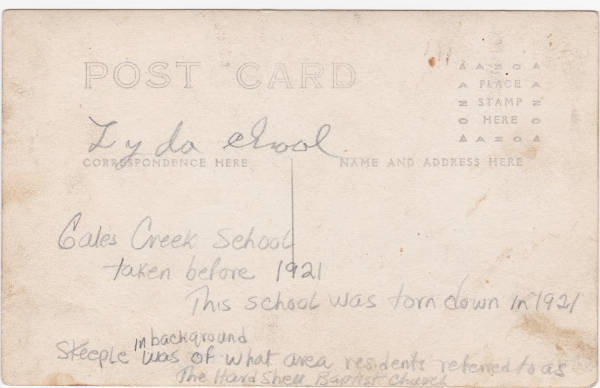 POST CARD
AZO
PLACE
STAMP
HERE
AZO
Lyda chool
CORRESPONDENCE HERE
NAME AND ADDRESS HERE
Gales Creek School
taken before 1921
This school was torn down in 1921
in background
Steeple was of what area residents referred to as
The Hard Shell Baptist Church